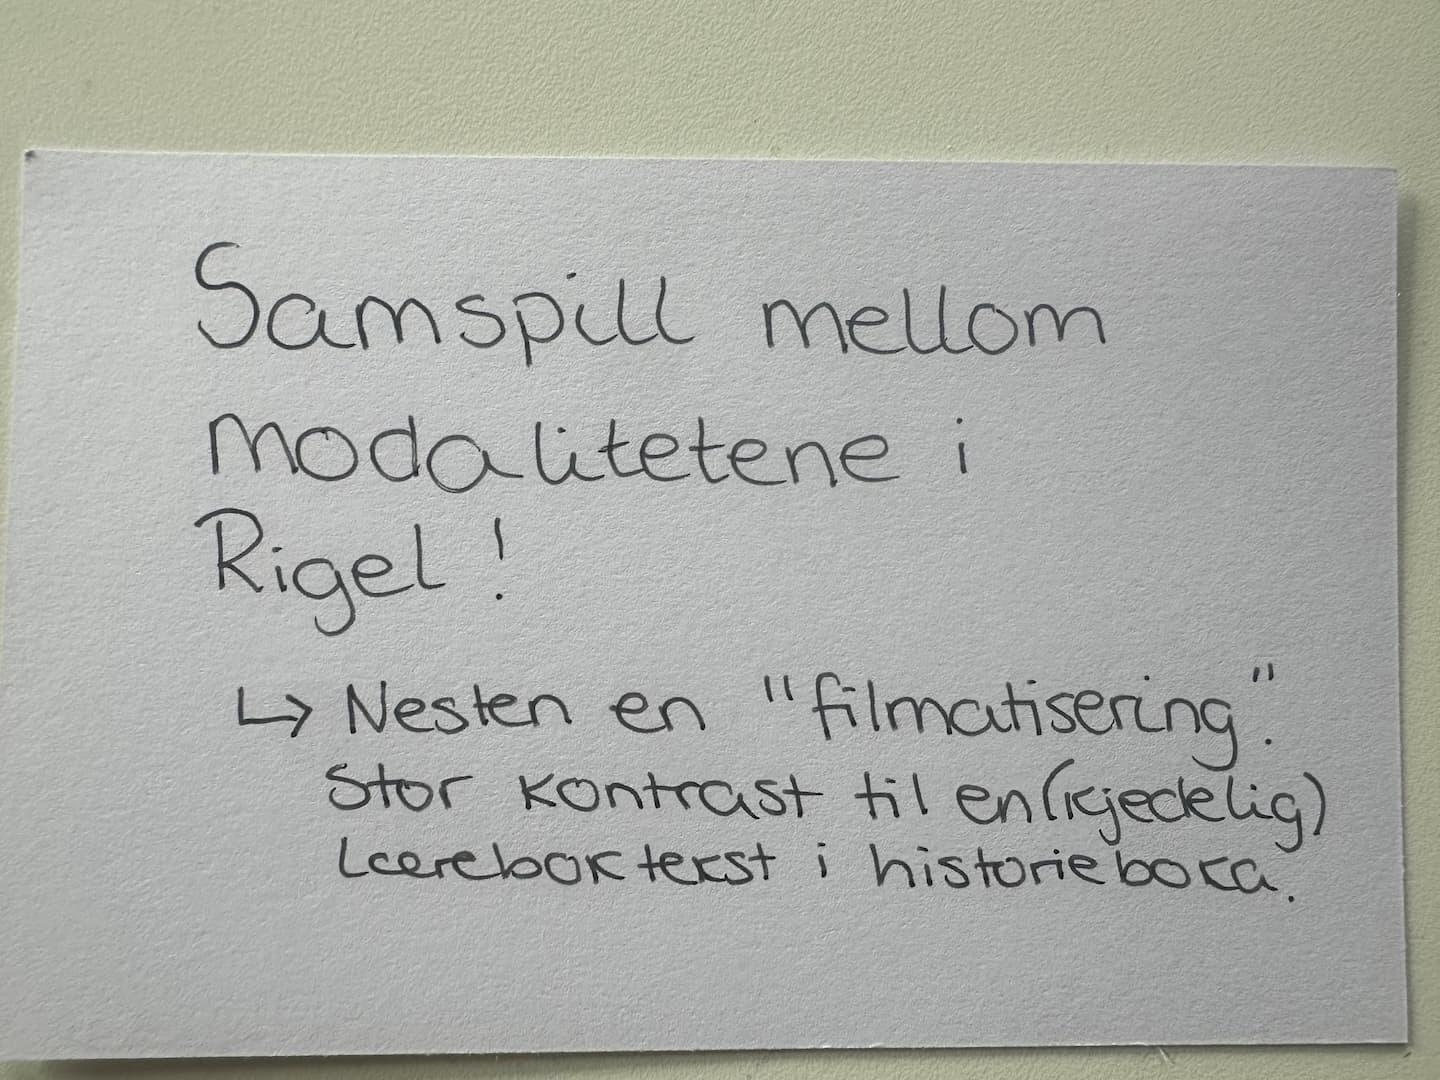 Samspill mellom
modalitetene i
Rigel!
↳ Nesten en "filmatisering".
Stor kontrast til en (kjedelig)
Lærebok tekst i historieboka.